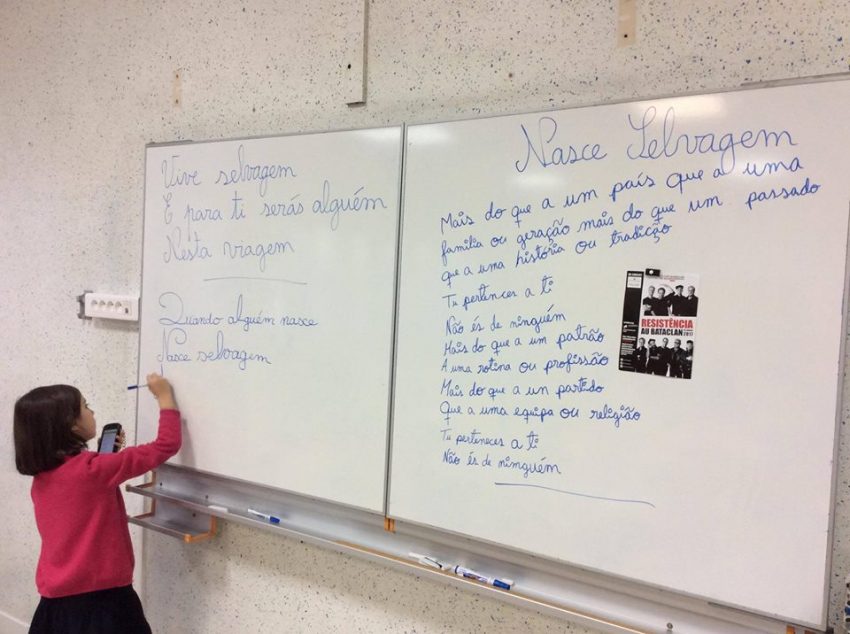 Vive selvagem
E para ti serás alguém
Nesta viagem
Quando alguém nasce
Nasce selvagem
Nasce Selvagem
Mais do que a um país que a uma
família ou geração mais do que um passado
que a uma história ou tradição
Tu pertences a ti
Não és de ninguém
Mais do que a um patrão
A uma rotina ou profissão
Mais do que a un partido
Que a uma equipa ou religião
Tu perteneces a ti
Não és de nimguém
RESISTÊNCIA
AU BATACLAN